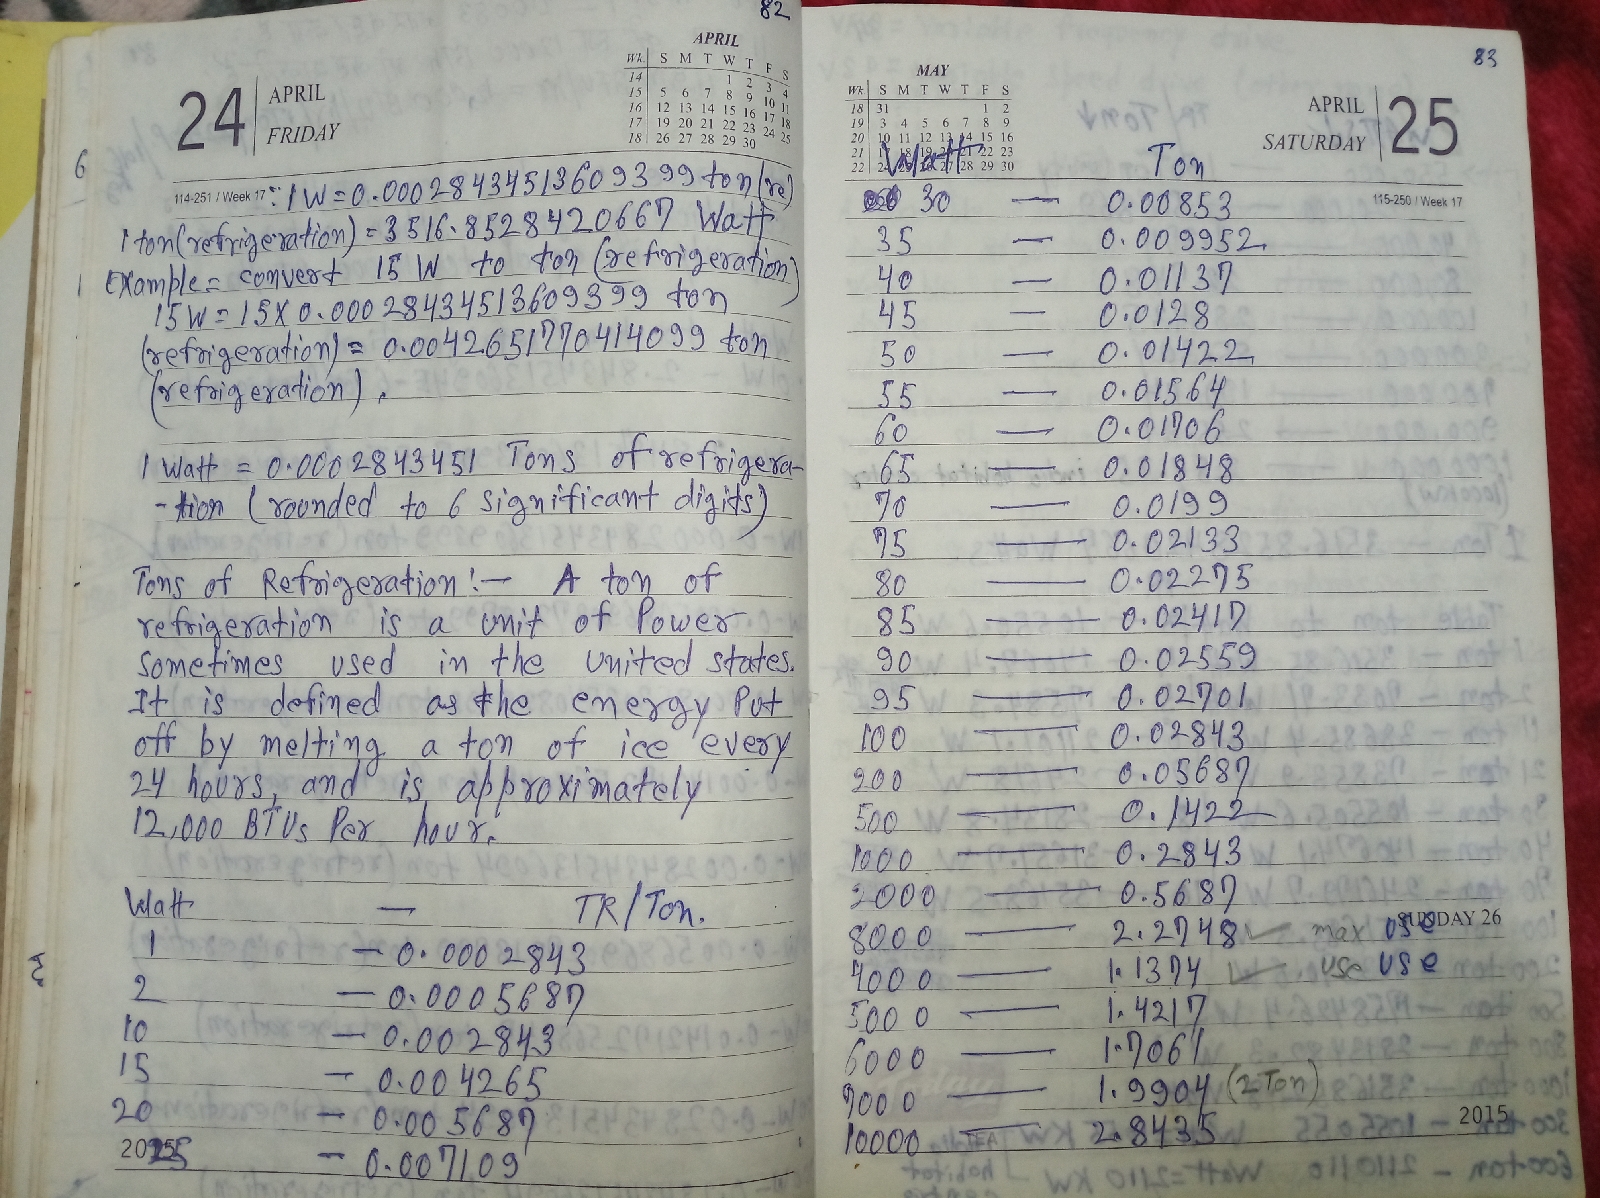 82
24
APRIL
FRIDAY
APRIL
Wk S M T W T F S
14 1 2 3 4
15 5 6 7 8 9 10 11
16 12 13 14 15 16 17 18
17 19 20 21 22 23 24 25
18 26 27 28 29 30
114-251 / Week 17
∵ 1 W = 0.00028434513609399 ton (re)
1 ton (refrigeration) = 3516.8528420667 Watt
Example = convert 15 W to ton (refrigeration)
15 W = 15 X 0.00028434513609399 ton
(refrigeration) = 0.0042651770414099 ton
(refrigeration).
1 Watt = 0.0002843451 Tons of refrigera-
-tion (rounded to 6 significant digits)
Tons of Refrigeration :- A ton of
refrigeration is a unit of Power
Sometimes used in the United states.
It is defined as the energy Put
off by melting a ton of ice every
24 hours, and is approximately
12,000 BTUs Per hour.
Watt — TR/Ton.
1 — 0.0002843
2 — 0.0005687
10 — 0.002843
15 — 0.004265
20 — 0.005687
25 — 0.007109
83
MAY
Wk S M T W T F S
18 31 1 2
19 3 4 5 6 7 8 9
20 10 11 12 13 14 15 16
21 17 18 19 20 21 22 23
22 24 25 26 27 28 29 30
APRIL
SATURDAY
25
115-250 / Week 17
Watt Ton
30 — 0.00853
35 — 0.009952
40 — 0.01137
45 — 0.0128
50 — 0.01422
55 — 0.01564
60 — 0.01706
65 — 0.01848
70 — 0.0199
75 — 0.02133
80 — 0.02275
85 — 0.02417
90 — 0.02559
95 — 0.02701
100 — 0.02843
200 — 0.05687
500 — 0.1422
1000 — 0.2843
2000 — 0.5687
SUNDAY 26
8000 — 2.2748 ✓ max use
4000 — 1.1374 ✓ use use
5000 — 1.4217
6000 — 1.7061
7000 — 1.9904 (2 Ton)
10000 — 2.8435
2015